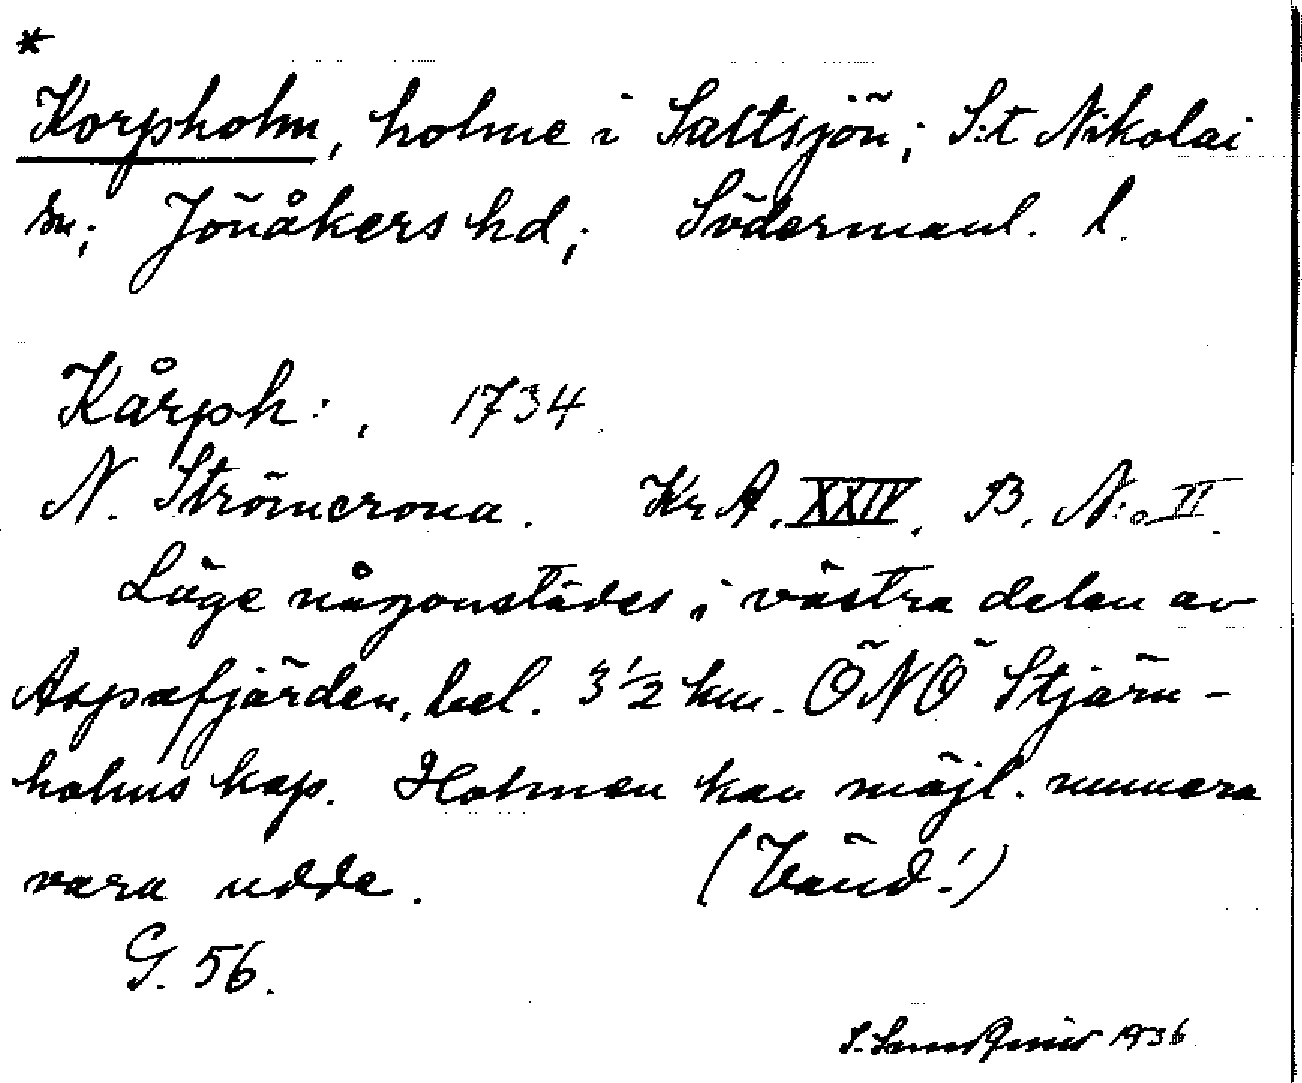 *
Korpholm, holme i Saltsjön; S:t Nikolai
sn; Jönåkers hd; Södermanl. l.
Kårph:, 1734.
N. Strömcrona. Kr A. XXIV. B. N:o II.
Läge någonstädes i västra delen av
Aspafjärden, bel. 3 1/2 km. ÖNÖ Stjärn-
holms kap. Holmen kan möjl. numera
vara udde. (Vänd!)
G. 56.
S. 1936